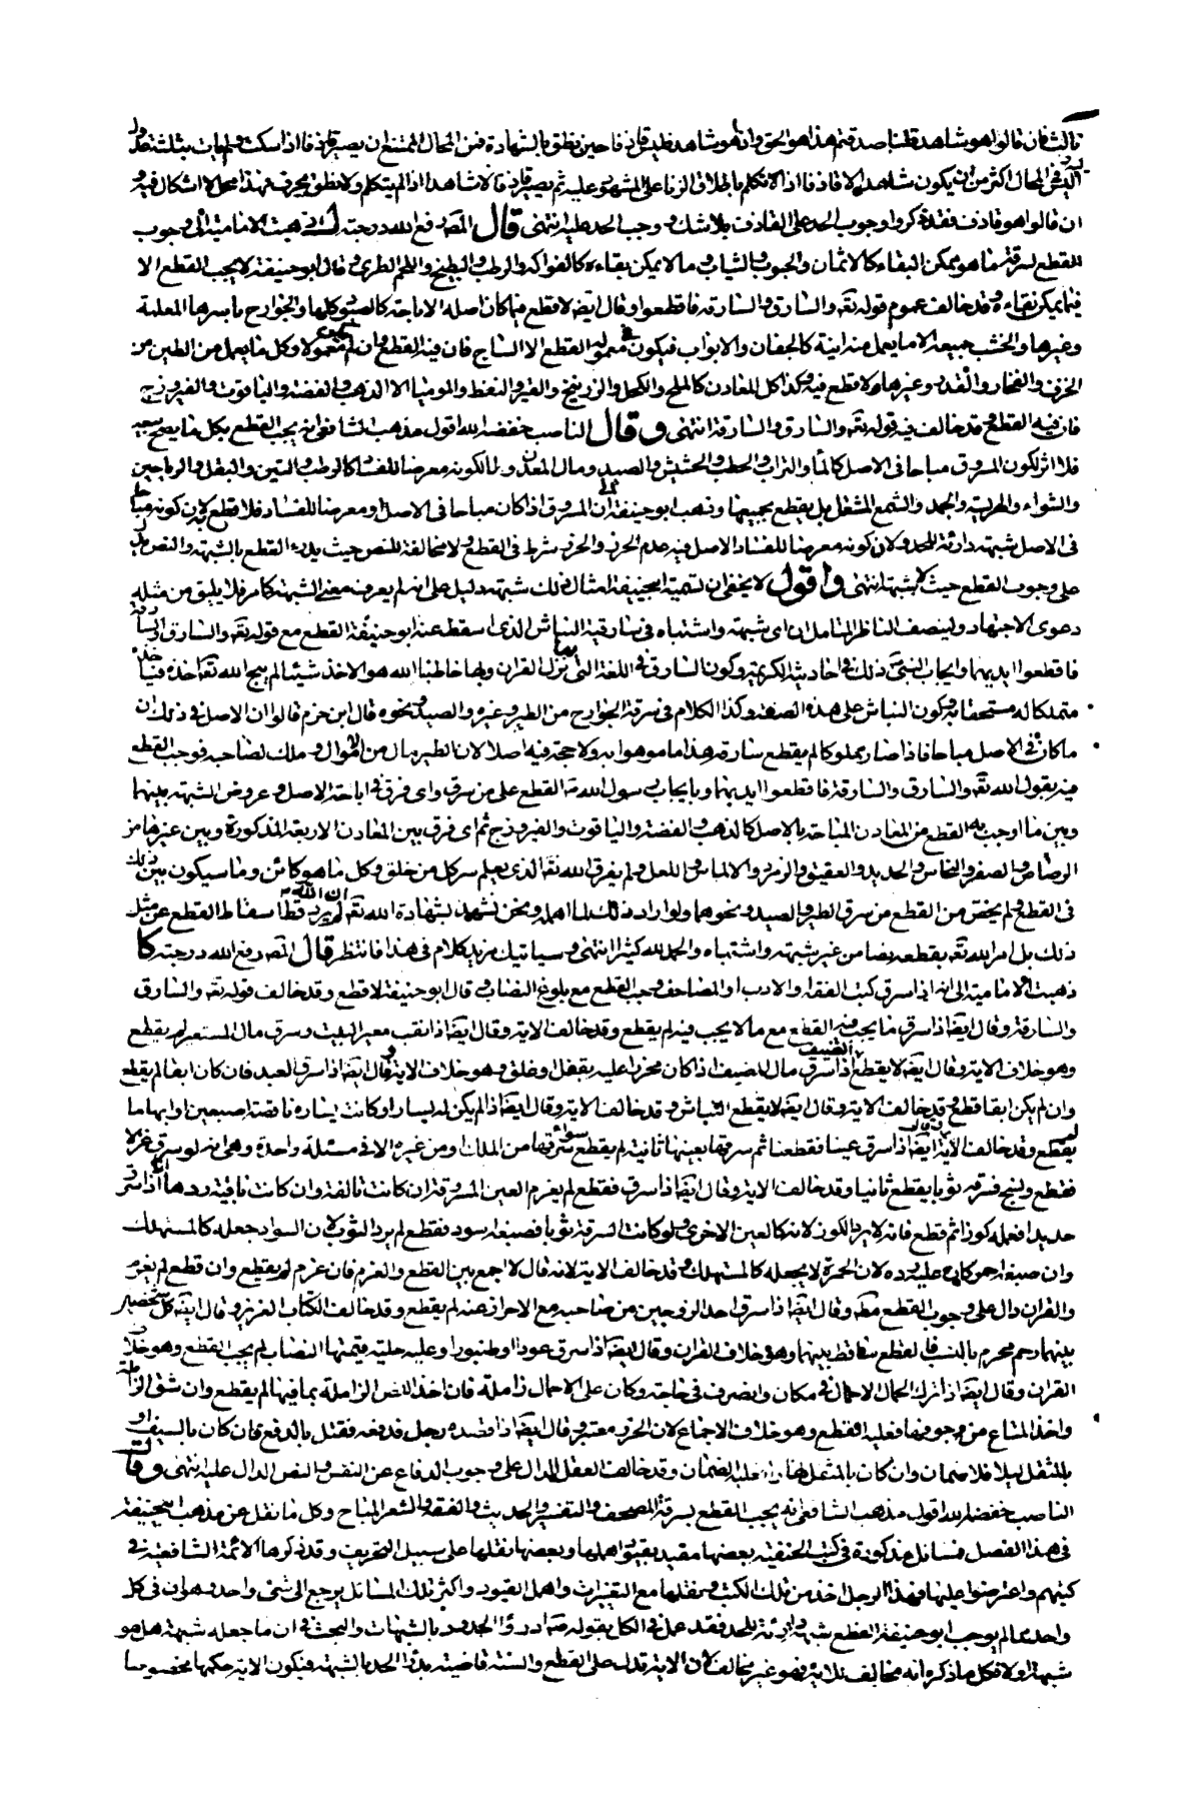 ثالث فان قالوا هو شاهد قلنا صدقتم هذا هو الحق واذ هو شاهد فليس قاذفا حين نطق بالشهادة فمن المحال الممتنع ان يصير قاذفا اذا سكت ولم يات بثلثة عدول
اليس في المحال اكثر من ان يكون شاهدا لا قاذفا اذا تكلم باطلاق الزنا على المشهود عليه ثم يصير قاذفا لا شاهدا اذا لم يتكلم ولا نطق بحرف فهذا محل لا اشكال فيه
ان قالوا هو قاذف فقد ذكروا وجوب الحد على القاذف بلا شك وجب الحد عليه انتهى قال المصـ رفع الله درجته ذهبت الامامية الى وجوب
القطع بسرقة ما هو ممكن البقاء كالاثمان والحبوب والثياب وما لا يمكن بقاءه كالفواكه والرطب والبطيخ واللحم الطري وقال ابو حنيفة لا يجب القطع الا
فيما يمكن بقاءه وقد خالف عموم قوله تعـ والسارق والسارقة فاقطعوا وقال ايضـ لا قطع فيما كان اصله الاباحة كالصيود كلها والجوارح باسرها المعلمة
وغيرها والخشب جميعه الا ما يعمل منه آنية كالجفان والابواب فيكون في معموله القطع الا الساج فان فيه القطع وان لم يكن معمولا وكل ما يعمل من الطين من
الخزف والفخار والقدور وغيرها لا قطع فيه وكذا كل المعادن كالملح والكحل والزرنيخ والقير والنفط والموميا الا الذهب والفضة والياقوت والفيروزج
فان فيه القطع وقد خالف فيه قوله تعـ والسارق والسارقة انتهى وقال الناصب خفضه الله اقول مذهب الشافعي انه يجب القطع بكل ما يصح بيعه
فلا اثر لكون المسروق مباحا في الاصل كالماء والتراب والحطب والحشيش والصيد ومال المعدن ولا لكونه معرضا للفساد كالرطب والتين والبقل والرياحين
والشواء والهريسة والجمد والشمع المشتعل بل يقطع بجميعها وذهب ابو حنيفة الى ان المسروق اذا كان مباحا في الاصل او معرضا للفساد فلا قطع لان كونه مباحا
في الاصل شبهة دارئة للحد ولان كونه معرضا للفساد الاصل فيه عدم الحرز والحرز شرط في القطع ولا مخالفة للنص حيث يدرء القطع بالشبهة والنص يدل
على وجوب القطع حيث لا شبهة انتهى واقول لا يخفى ان تسمية ابي حنيفة امثال ذلك شبهة دليل على انه لم يعرف معنى الشبهة كما مر فلا يليق من مثله
دعوى الاجتهاد ولينصف الناظر المتامل ان اي شبهة واشتباه في سارقية النباش الذي اسقط عنه ابو حنيفة القطع مع قوله تعـ والسارق والسارقة
فاقطعوا ايديهما وايجاب النبي ذلك في احاديثه الكريمة وكون السارق في اللغة التي نزل بها القران وبها خاطبنا الله هو الاخذ شيئا لم يبح الله تعـ اخذه فياخذه
متملكا له مستخفيا به وكون النباش على هذه الصفة وكذا الكلام في سرقة الجوارح من الطير وغيره والصيد ونحوه قال ابن حزم قالوا ان الاصل في ذلك ان
ما كان في الاصل مباحا فاذا صار مملوكا لم يقطع سارقه هذا ما موهوا به ولا حجة فيه اصلا لان الطير مال من الاموال وملك لصاحبه فوجب القطع
فيه بقول الله تعـ والسارق والسارقة فاقطعوا ايديهما وبايجاب رسول الله صـ القطع على من سرق واي فرق في اباحة الاصل وعروض الشبهة بينهما
وبين ما اوجب به القطع من المعادن المباحة بالاصل كالذهب والفضة والياقوت والفيروزج ثم اي فرق بين المعادن الاربعة المذكورة وبين غيرها من
الرصاص والصفر والنحاس والحديد والعقيق والزمرد والالماس واللعل ولم يفرق الله تعـ الذي يعلم سر كل من خلق وكل ما هو كائن وما سيكون بين ذلك
في القطع ولم يخص من القطع من سرق الطير والصيد ونحوهما ولو اراد ذلك لما اهمله ونحن نشهد بشهادة الله تعـ ان الله لم يرد قط اسقاط القطع عن مثل
ذلك بل امر الله تعـ بقطعه نصا من غير شبهة واشتباه والحمد لله كثيرا انتهى وسياتيك مزيد كلام في هذا فانتظر قال المصـ رفع الله درجته كا
ذهبت الامامية الى انه اذا سرق كتب الفقه والادب او المصاحف وجب القطع مع بلوغ النصاب وقال ابو حنيفة لا قطع وقد خالف قوله تعـ والسارق
والسارقة وقال ايضـ اذا سرق ما يجب فيه القطع مع ما لا يجب فيه لم يقطع وقد خالف الاية وقال ايضـ اذا نقب معير البيت وسرق مال المستعير لم يقطع
وهو خلاف الاية وقال ايضـ لا يقطع الضيف اذا سرق مال المضيف اذا كان محرزا عليه بقفل او غلق وهو خلاف الاية وقال ايضـ اذا سرق العبد فان كان ابقا لم يقطع
وان لم يكن ابقا قطع وقد خالف الاية وقال ايضـ لا يقطع النباش وقد خالف الاية وقال ايضـ اذا لم يكن له يسار او كانت يساره ناقصة اصبعين او ابهاما
لم يقطع وقد خالف الاية وقال ايضـ اذا سرق عينا فقطعنا ثم سرقها بعينها ثانية لم يقطع سواء سرقها من المالك او من غيره الا في مسئلة واحدة وهي انه لو سرق غزلا
فقطع ونسج فسرقه ثوبا يقطع ثانيا وقد خالف الاية وقال ايضـ اذا سرق فقطع لم يغرم العين المسروقة ان كانت تالفة وان كانت باقية ردها اما اذا سرق
حديدا فعمله كوزا ثم قطع فانه لا يرد الكوز لانه كالعين الاخرى ولو كانت السرقة ثوبا فصبغه اسود فقطع لم يرد الثوب لان السواد جعله كالمستهلك
وان صبغه احمر كان عليه رده لان الحمرة لا يجعله كالمستهلك وقد خالف الاية لانه قال لا اجمع بين القطع والغرم فان غرم لم يقطع وان قطع لم يغرم
والقران دال على وجوب القطع مطـ وقال ايضـ اذا سرق احد الزوجين من صاحبه مع الاحراز عنه لم يقطع وقد خالف الكتاب العزيز وقال ايضـ كل شخصين
بينهما رحم محرم بالنسب فالقطع ساقط بينهما وهو خلاف القران وقال ايضـ اذا سرق عودا او طنبورا وعليه حلية قيمتها النصاب لم يجب القطع وهو خلاف
القران وقال ايضـ اذا ترك الجمال الاحمال في مكان وانصرف في حاجته وكان على الاحمال زاملة فان اخذ اللص الزاملة بما فيها لم يقطع وان شق الزاملة
واخذ المتاع من جوفها فعليه القطع وهو خلاف الاجماع لان الحرز معتبر وقال ايضـ اذا قصده رجل فدفعه فقتل بالدفع فان كان بالسيف او
بالمثقل ليلا فلا ضمان وان كان بالمثقل نهارا فعليه الضمان وقد خالف العقل الدال على وجوب الدفاع عن النفس والنص الدال عليه انتهى وقال
الناصب خفضه الله اقول مذهب الشافعي انه يجب القطع بسرقة المصحف والتفسير والحديث والفقه والشعر المباح وكل ما نقل عن مذهب ابي حنيفة
في هذا الفصل مسائل مذكورة في كتب الحنفية بعضها مقيد بقيود اهملها وبعضها نقلها على سبيل التحريف وقد ذكرها الائمة الشافعية في
كتبهم واعترضوا عليها فهذا الرجل اخذ من تلك الكتب ونقلها مع التغييرات واهمل القيود واكثر تلك المسائل يرجع الى شئ واحد وهو ان في كل
واحد مما لم يوجب ابو حنيفة القطع شبهة دارئة للحد فقد عمل في الكل بقوله صـ ادرؤا الحدود بالشبهات والبحث في ان ما جعله شبهة هل هو
شبهة او لا فكل ما ذكر انه مخالف للاية فهو غير مخالف لان الاية تدل على القطع والسنة قاضية بدرأ الحد بالشبهة فيكون الاية حكمها مخصوصا